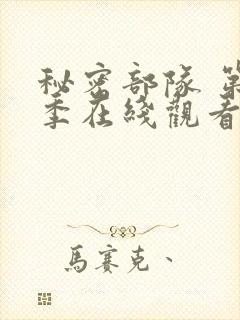 秘密部隊 第
季在綫觀看
馬賽克、